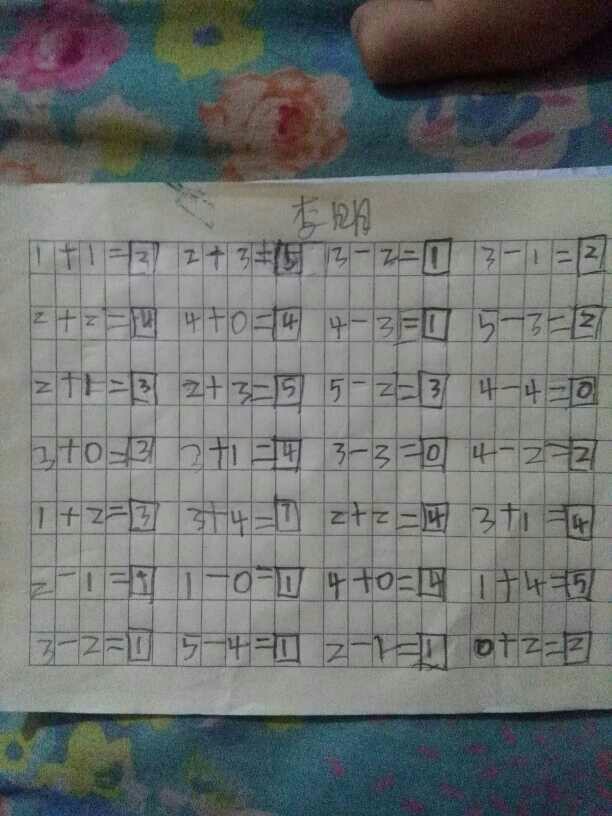 李明
1+1=2 2+3=5 3-2=1 3-1=2
2+2=4 4+0=4 4-3=1 5-3=2
2+1=3 2+3=5 5-2=3 4-4=0
3+0=3 3+1=4 3-3=0 4-2=2
1+2=3 3+4=7 2+2=4 3+1=4
2-1=1 1-0=1 4+0=4 1+4=5
3-2=1 5-4=1 2-1=1 0+2=2